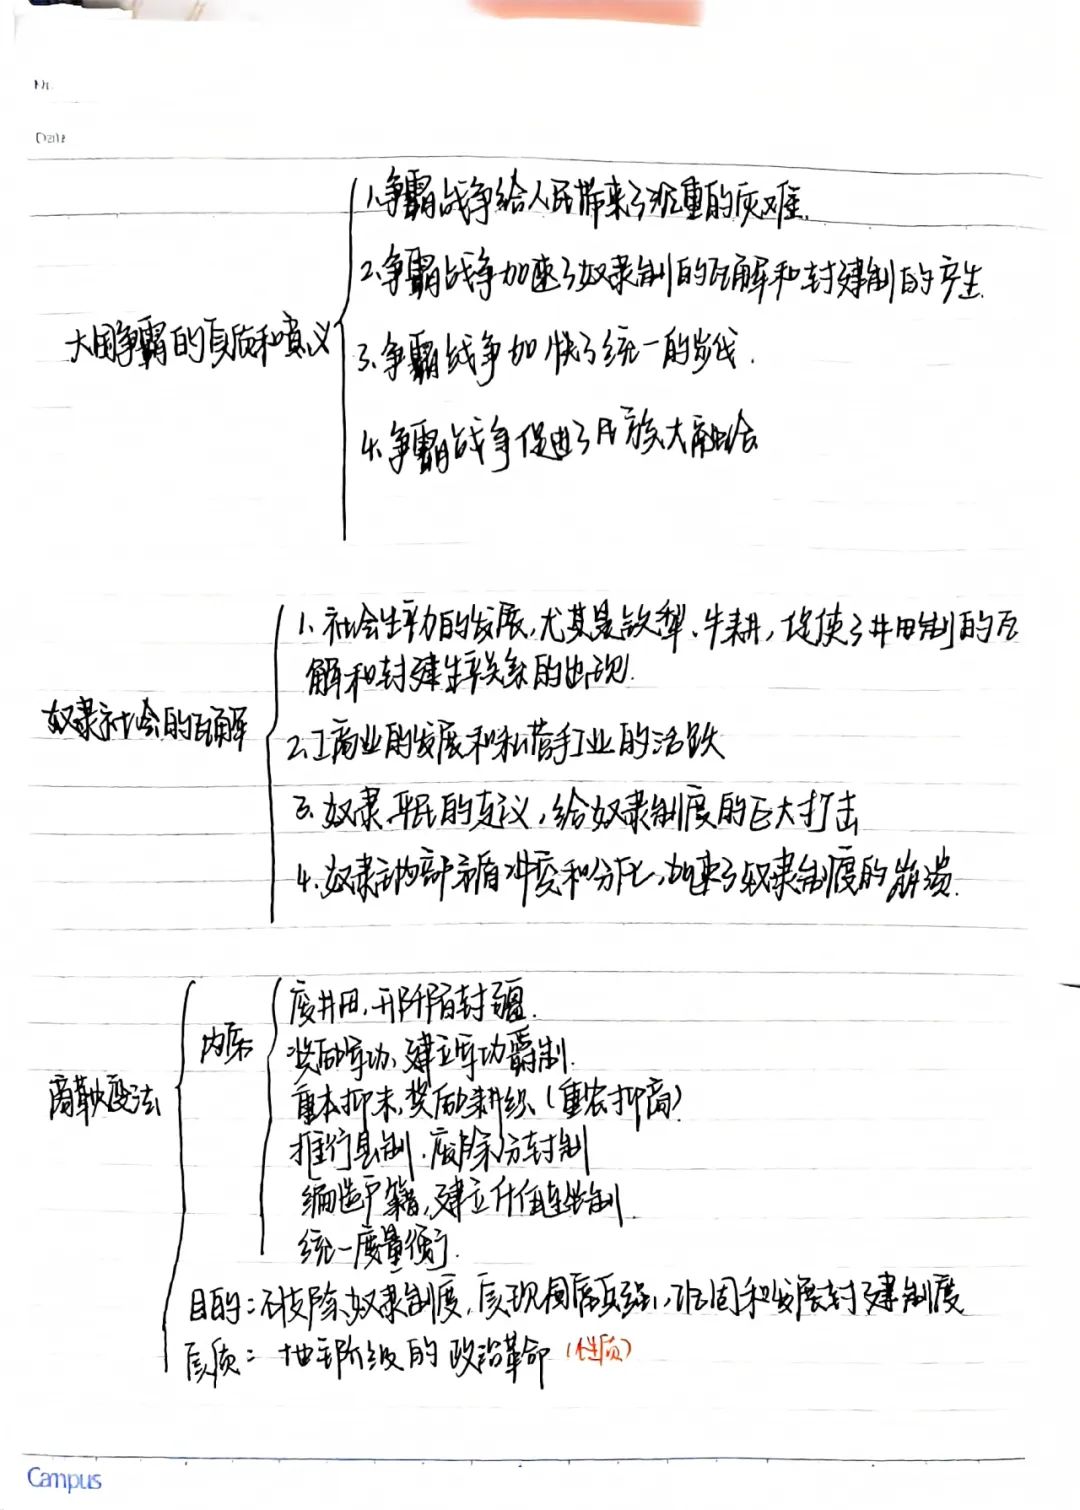 No.
Date
1.争霸战争给人民带来了沉重的灾难.
2.争霸战争加速了奴隶制的瓦解和封建制的产生.
大国争霸的实质和意义
3.争霸战争加快了统一的步伐.
4.争霸战争促进了民族大融合
1.社会生产力的发展,尤其是铁犁、牛耕,促使了井田制的瓦
解和封建生产关系的出现.
奴隶社会的瓦解
2.工商业的发展和私营手工业的活跃
3.奴隶、平民的起义,给奴隶制度的巨大打击
4.奴隶主内部矛盾冲突和分化,加速了奴隶制度的崩溃.
废井田,开阡陌封疆.
内容
奖励军功,建立军功爵制.
商鞅变法
重本抑末,奖励耕织(重农抑商)
推行县制.废除分封制
编造户籍,建立什伍连坐制
统一度量衡.
目的:废除奴隶制度,实现国富兵强,巩固和发展封建制度
实质:地主阶级的政治革命(性质)
Campus